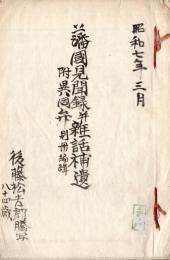 昭和七年 三月
藩國見聞録并雑話補遺
附異同弁 別冊編輯
後藤松吉郎謄写
八十四歳